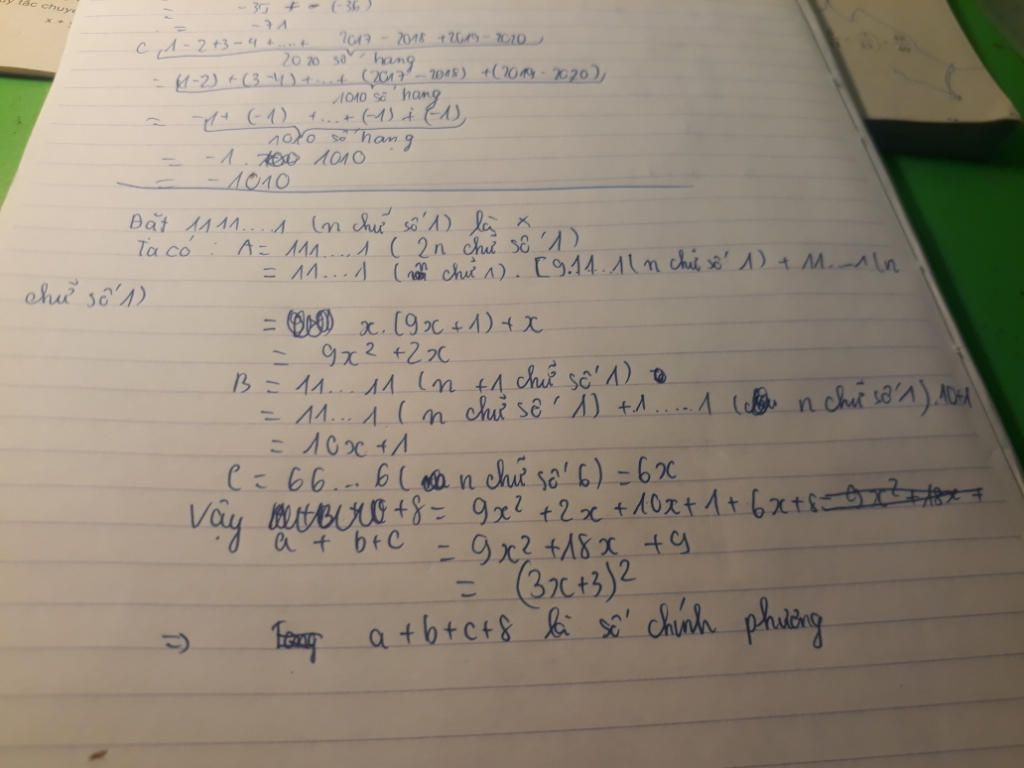 ắc chuy
x +
= -35 + - (-36)
= -71
C, 1-2+3-4+....+ 2017-2018+2019-2020
2020 số hạng
= (1-2)+(3-4)+...+(2017-2018)+(2019-2020)
1010 số hạng
= -1+(-1)+...+(-1)+(-1)
1010 số hạng
= -1. 1010
= -1010
Đặt 1111....1 (n chữ số 1) là x
Ta có: A = 111....1 (2n chữ số 1)
= 11...1 (n chữ 1).[9.11.1(n chữ số 1) + 11...1(n
chữ số 1)
= x.(9x+1)+x
= 9x²+2x
B = 11...11 (n+1 chữ số 1)
= 11...1 (n chữ số 1) +1....1 (n chữ số 1).10+1
= 10x+1
C = 66...6( n chữ số 6) = 6x
Vậy +8 = 9x²+2x+10x+1+6x+8 = 9x²+18x+
a + b+c = 9x²+18x+9
= (3x+3)²
=> a+b+c+8 là số chính phương